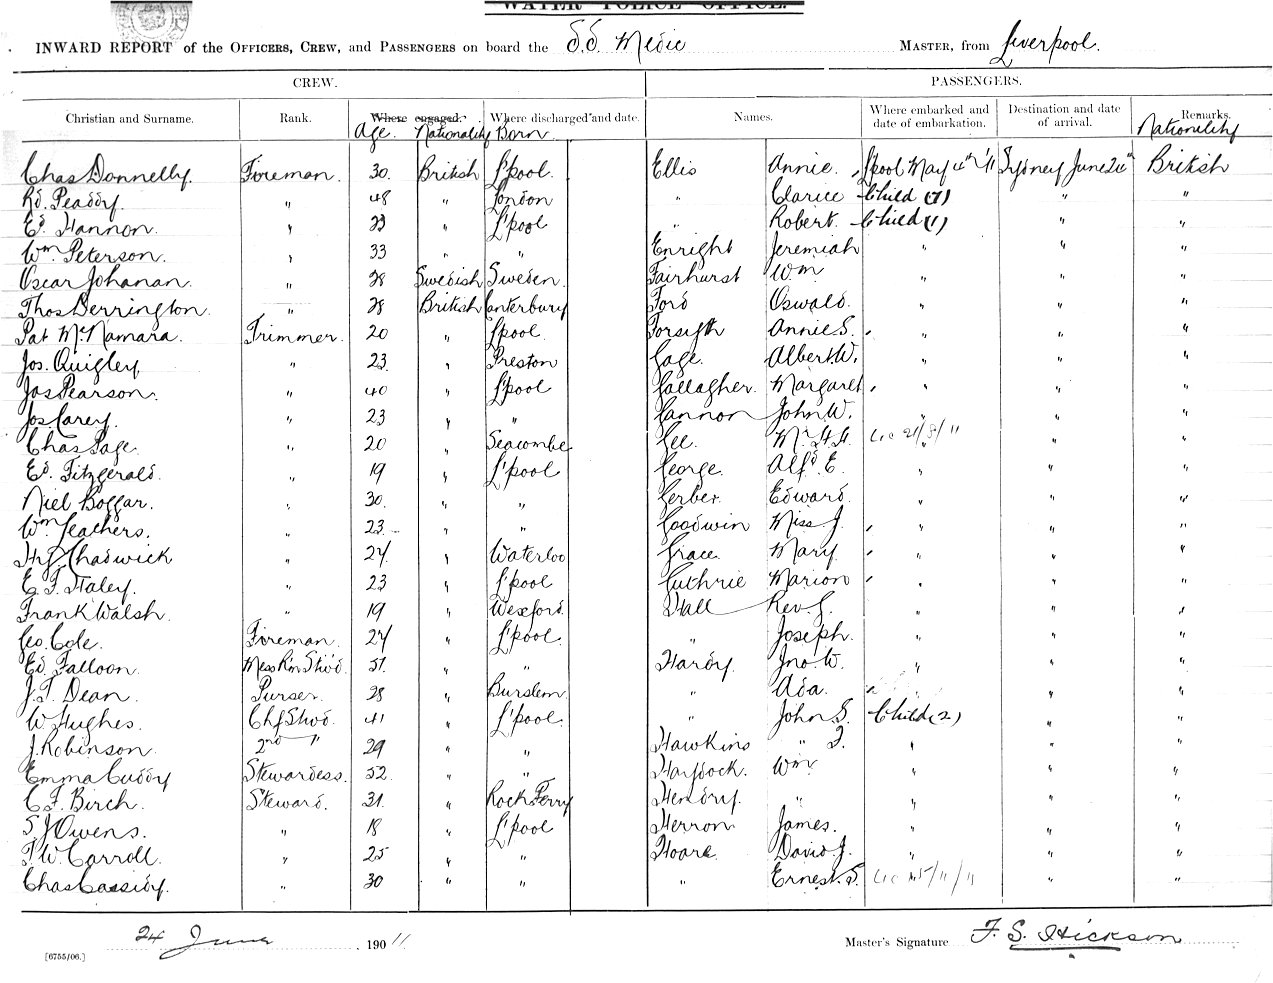 WATER POLICE OFFICE.
INWARD REPORT of the OFFICERS, CREW, and PASSENGERS on board the S.S. Medic MASTER, from Liverpool.
CREW. PASSENGERS.
Christian and Surname. Rank. Where engaged. Where discharged and date. Names. Where embarked and date of embarkation. Destination and date of arrival. Remarks.
Age. Nationality Born Nationality
Chas Donnelly Fireman. 30. British L'pool. Ellis Annie. L'pool May 4th '11 Sydney June 24th British
Rd. Peaddy. " 48 " London " Clarice Child (7) " "
Ed. Hannon. " 23 " L'pool " Robert. Child (1) " "
Wm Peterson. " 33 " " Enright Jeremiah " " "
Oscar Johanan. " 28 Swedish Sweden. Fairhurst Wm " " "
Thos Derrington. " 28 British Canterbury Ford Oswald. " " "
Pat McNamara. Trimmer. 20 " L'pool. Forsyth Annie S. " " "
Jos. Quigley. " 23 " Preston Gage. Albert W. " " "
Jas Pearson. " 40 " L'pool Gallagher. Margaret " " "
Jos. Carey. " 23 " " Gannon John W. " " "
Chas Page. " 20 " Seacombe Gee. Mr. 21/8/11 " "
Ed. Fitzgerald. " 19 " L'pool George. Alfd. E. " " "
Niel Boggar. " 30. " " Gerber. Edward. " " "
Wm Leathers. " 23 " " Goodwin Miss J. " " "
Hy. Chadwick " 24 " Waterloo Grace. Mary. " " "
E. F. Staley. " 23 " L'pool Guthrie Marion " " "
Frank Walsh. " 19 " Wexford. Hall Rev G. " " "
Geo. Cole. Fireman. 24 " L'pool. " Joseph. " " "
Ed. Falloon. Mess Rm Stwd. 51. " " Hardy. Jno W. " " "
J. T. Dean. Purser. 28 " Burslem. " Ada. " " "
W. Hughes. Chf Stwd. 41 " L'pool. " John S. Child (2) " "
J. Robinson. 2nd " 29 " " Hawkins " J. " " "
Emma Cuddy Stewardess. 52. " " Haydock. Wm " " "
C. F. Birch. Steward. 31. " Rock Ferry Hendry. " " " "
S. J. Owens. " 18 " L'pool Herron James. " " "
T. W. Carroll. " 25 " " Hoare David J. " " "
Chas Cassidy. " 30 " " " Ernest S. " "
24 June . 190 11 Master's Signature F. S. Hickson
[6755/06.]